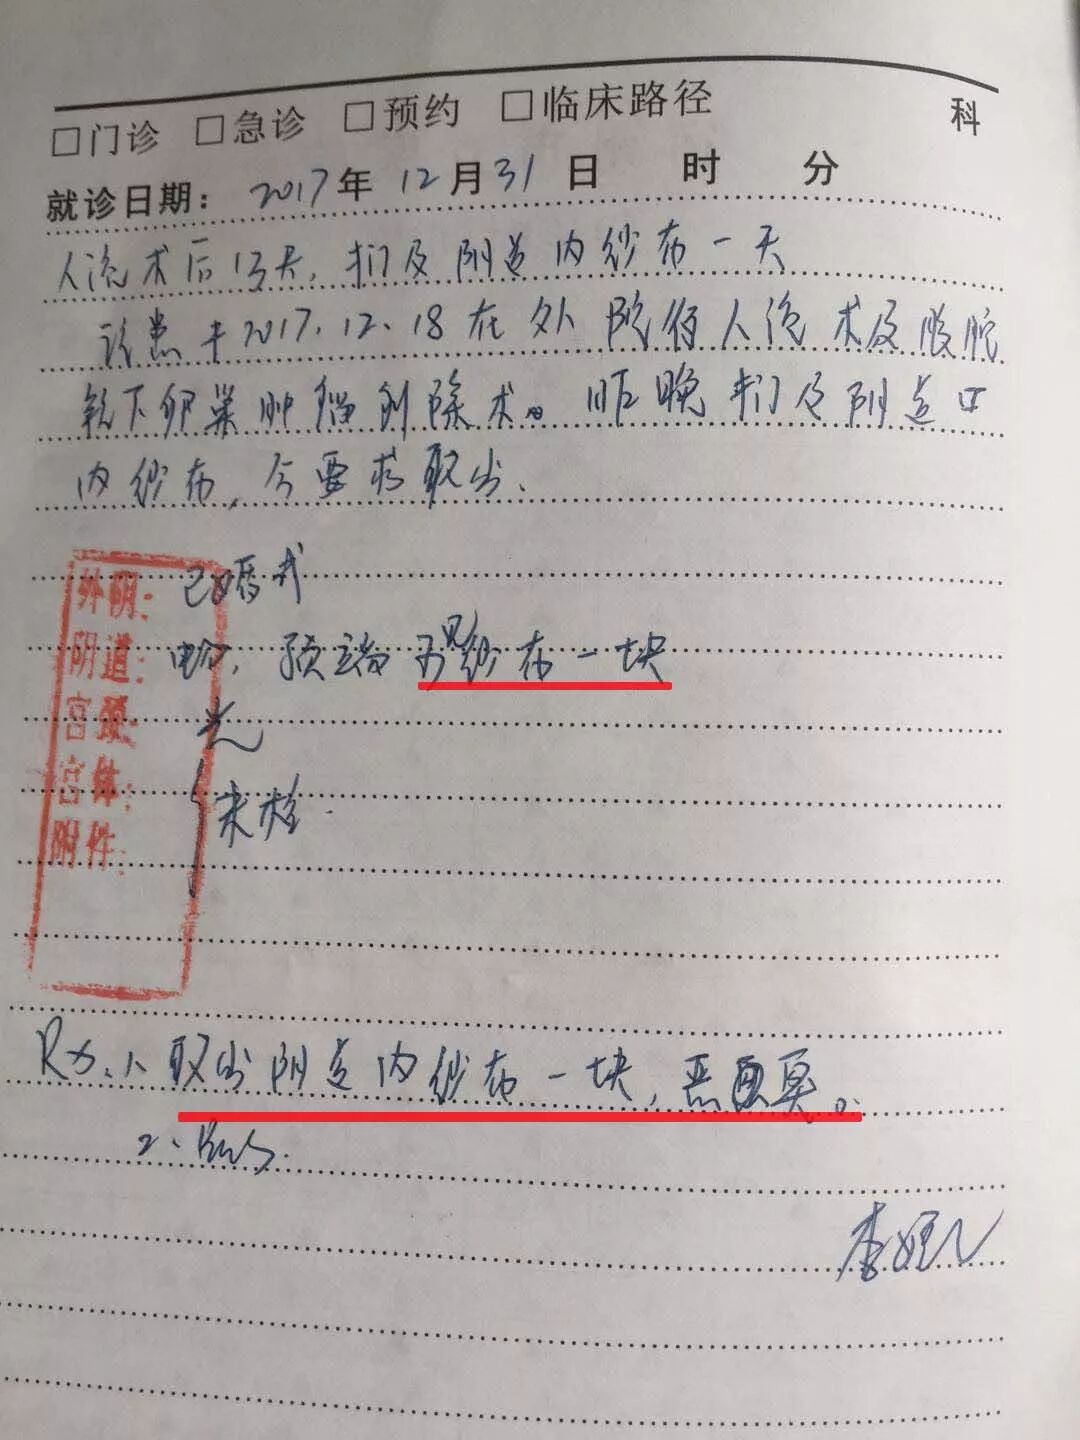 □门诊 □急诊 □预约 □临床路径 科
就诊日期: 2017年 12月31日 时 分
人流术后13天,扪及阴道内纱布一天
该患于2017.12.18在外院行人流术及腹腔
镜下卵巢肿瘤剥除术。昨晚扪及阴道口
内纱布,今要求取出.
外阴: 已婚式
阴道: 畅,顶端可见纱布一块
宫颈: 光
宫体:
附件: 未检.
Rx: 1、取出阴道内纱布一块,恶臭。
2、
李